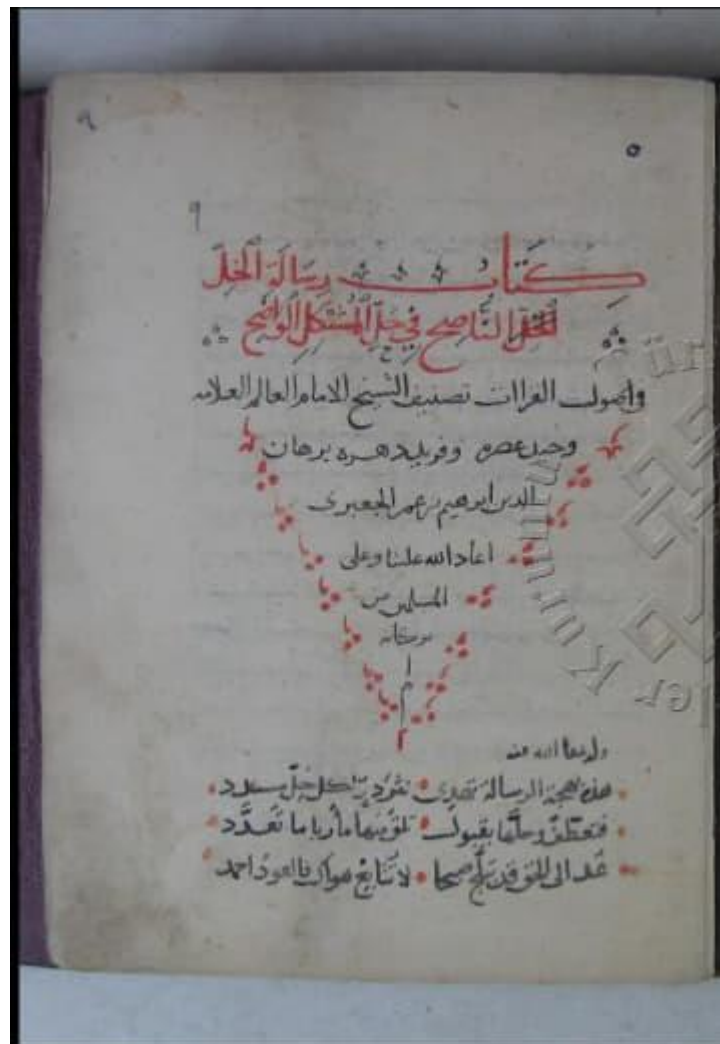 ٩
٥
٩
كتاب رسالة الخل
الناصح في حل المشكل الواضح
واصول القراات تصنيف الشيخ الامام العالم العلامه
وحيد عصره وفريد دهره برهان
الدين ابرهيم بن عمر الجعبري
اعاد الله علينا وعلى
المسلمين من
بركاته
وله عفا الله عنه
هذه بهجة الرسالة تهدى كل خل يسدد
فتعطف وحلها بقبول تلق منها مأربا ما تعدد
عد الى الحق قد تبلج صبحا لا تتابع هواك فالعود احمد